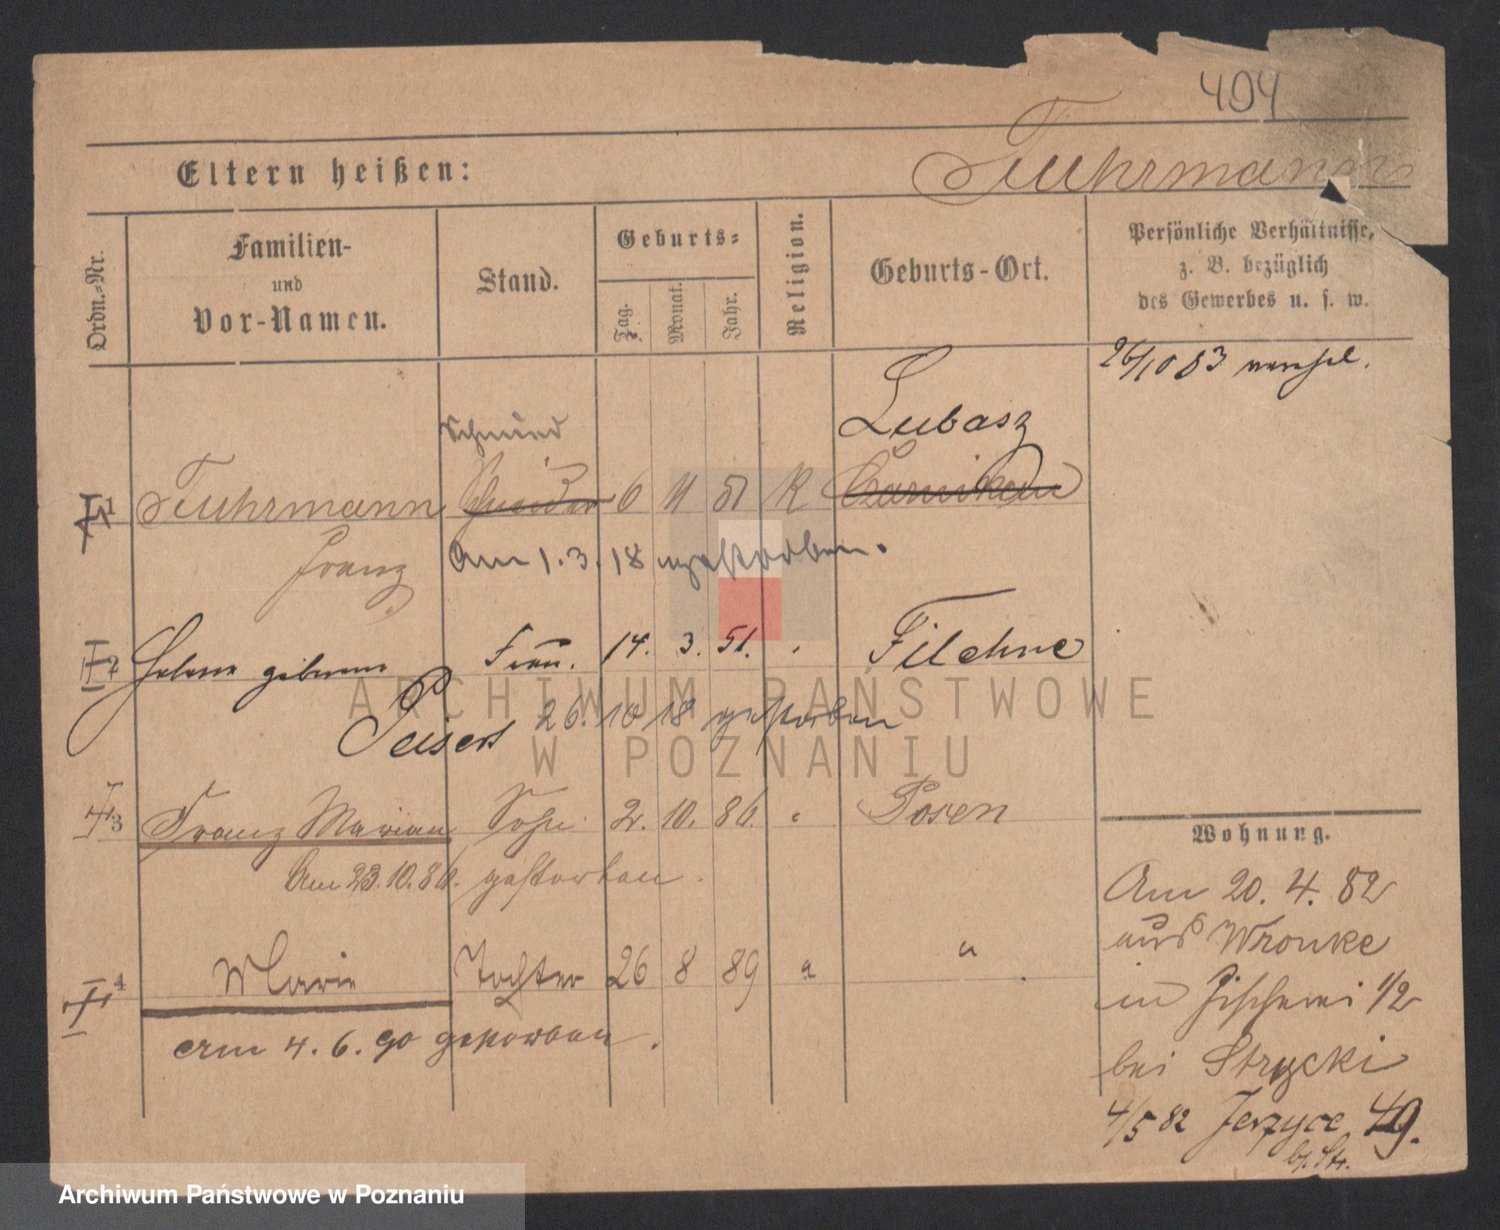 494
Eltern heißen:
Fuhrmann
Ordn.-Nr.
Familien-
und
Vor-Namen.
Stand.
Geburts-
Tag.
Monat.
Jahr.
Religion.
Geburts-Ort.
Persönliche Verhältnisse,
z. B. bezüglich
des Gewerbes u. s. w.
26/10 83
Schmied
Lubasz
1 Fuhrmann Schneider 6 11 51 K Czarnikau
Franz
Am 1.3.18 gestorben.
2 Helene geborene Frau. 14. 3. 51. Filehne
Peisert
26.10 18 gestorben
3 Franz Marian Sohn 2. 10. 86. Posen
Am 23.10.86. gestorben.
4 Marie Tochter 26 8 89 " "
am 4.6.90 gestorben.
Wohnung.
Am 20. 4. 82
aus Wronke
in Fischerei 1/2
bei Strycki
4/5 82 Jerzyce 49.
ARCHIWUM PAŃSTWOWE
W POZNANIU
Archiwum Państwowe w Poznaniu